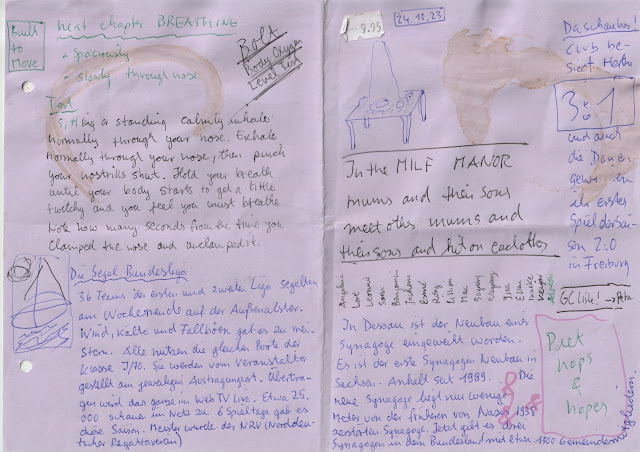 Built
to
Move
next chapter BREATHING
- Spaciously
- slowly through nose
BOLT
Body Oxygen
Level Test
Test
Sitting or standing calmly inhale
normally through your nose. Exhale
normally through your nose, then pinch
your nostrills shut. Hold your breath
until your body starts to get a little
twitchy and you feel you must breathe
Note how many seconds from the time you
clamped the nose and unclamped it.
Die Segel Bundesliga
36 Teams der ersten und zweiten Liga segelten
am Wochenende auf der Außenalster.
Wind, Kälte und Fallböen gab es zu meis-
tern. Alle nutzen die gleichen Boote der
Klasse J/70. Sie werden vom Veranstalter
gestellt am jeweiligen Austragungsort. Übertra-
gen wird das ganze im Web TV Live. Etwa 25.
000 schauen im Netz zu. 6 Spieltage gab es
diese Saison. Meister wurde der NRV (Nordden-
tscher Regattaverein)
9.95
24.10.23
In the MILF MANOR
mums and their sons
meet other mums and
their sons and hit on eachother
Angeline
Loré
Leonard
Soson
Benjamin
Jochem
Ricky
Lillian
Mac
Jim
Da schau her!
Club be-
siegt Hertha
3:1
und auch
die Damen
gewinnen
ihr erstes
Spiel der Sai-
son 2:0
in Freiburg
GC Lisi! → Peta
In Dessau ist der Neubau einer
Synagoge eingeweiht worden.
Es ist der erste Synagogen Neubau in
Sachsen-Anhalt seit 1989. Die
neue Synagoge liegt nur wenige
Meter von der früheren von Nazis 1938
zerstörten Synagoge. Jetzt gibt es drei
Synagogen in dem Bundesland mit etwa 1300 Gemeindemitgliedern.
Puet
hops
&
hopes